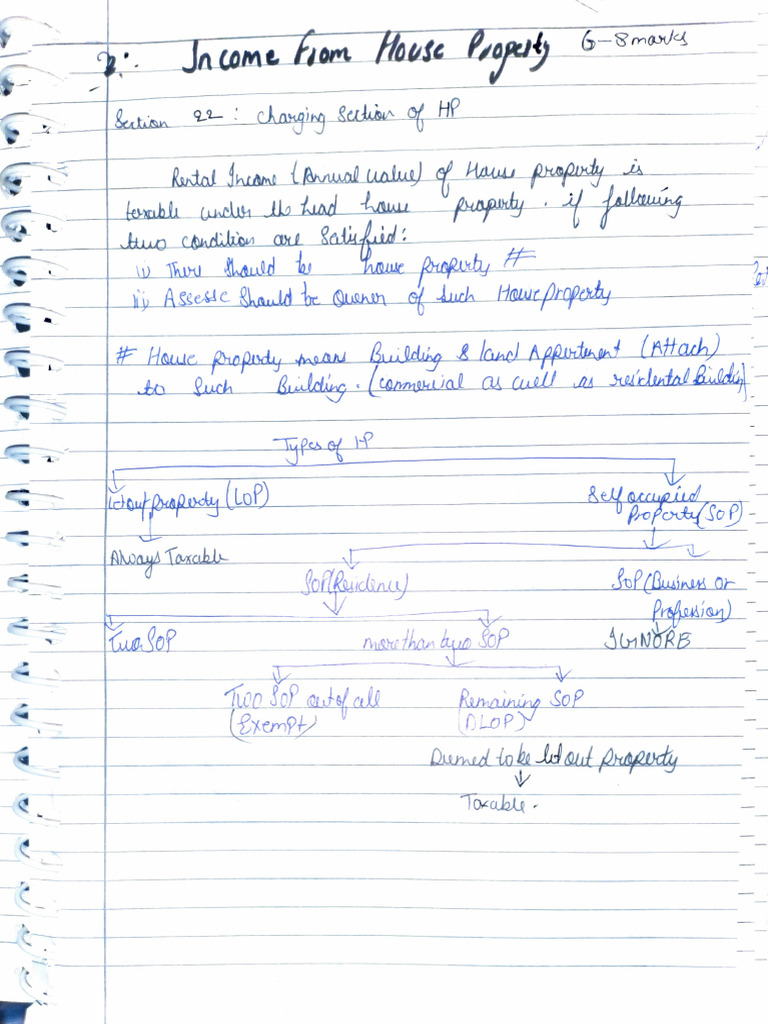 2:. Income From House Property 6-8 marks
Section 22 : Charging Section of HP
Rental Income (Annual Value) of House property is
taxable under the head house property. if following
two condition are Satisfied:
i) There should be house property #
ii) Assesse Should be Owner of Such House Property
# House property means Building & land Appertenent (Attach)
to Such Building. (commercial as well as residental Building)
Types of HP
Let out property (LOP)
Self occupied
Property (SOP)
Always Taxable
SOP (Residence)
SOP (Business or
Profession)
Two SOP
more than two SOP
IGNORE
Two SOP out of all
(Exempt)
Remaining SOP
(DLOP)
Deemed to be let out property
Taxable.